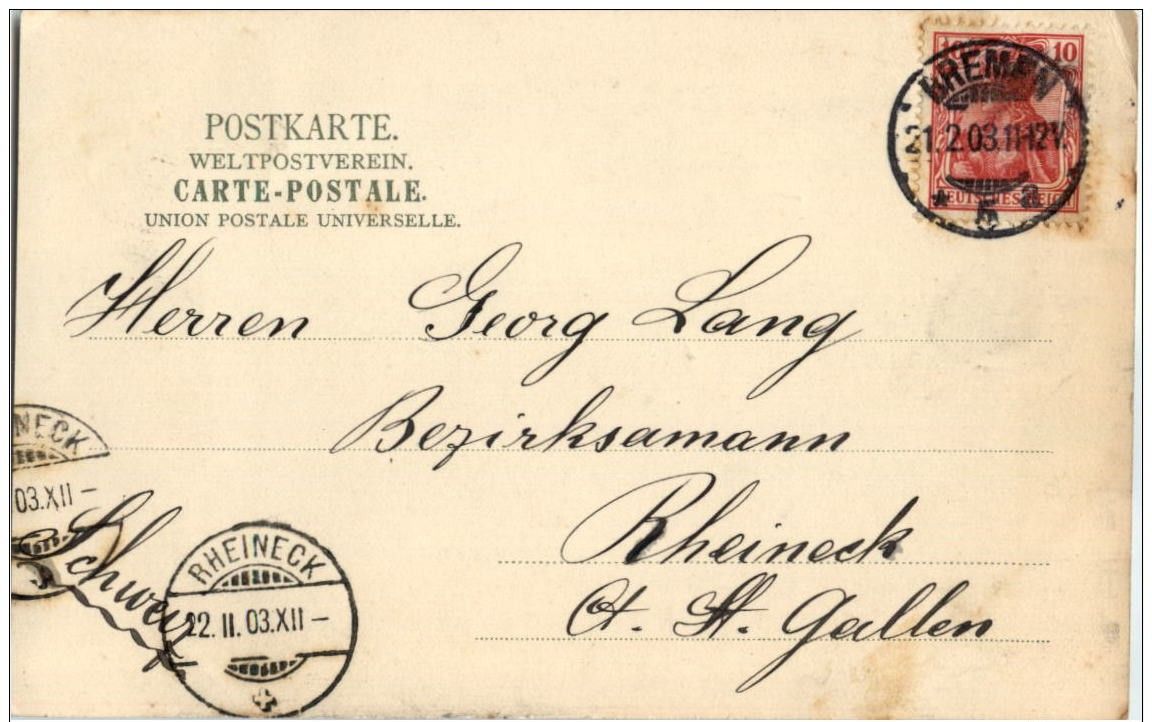 POSTKARTE.
WELTPOSTVEREIN.
CARTE-POSTALE.
UNION POSTALE UNIVERSELLE.
10
BREMEN
21.2.03.11-12V.
* 5 a
DEUTSCHES REICH
Herren Georg Lang
Bezirksamann
Rheineck
Ct. St. Gallen
Schweiz
NECK
03.XII –
RHEINECK
22. II. 03.XII –